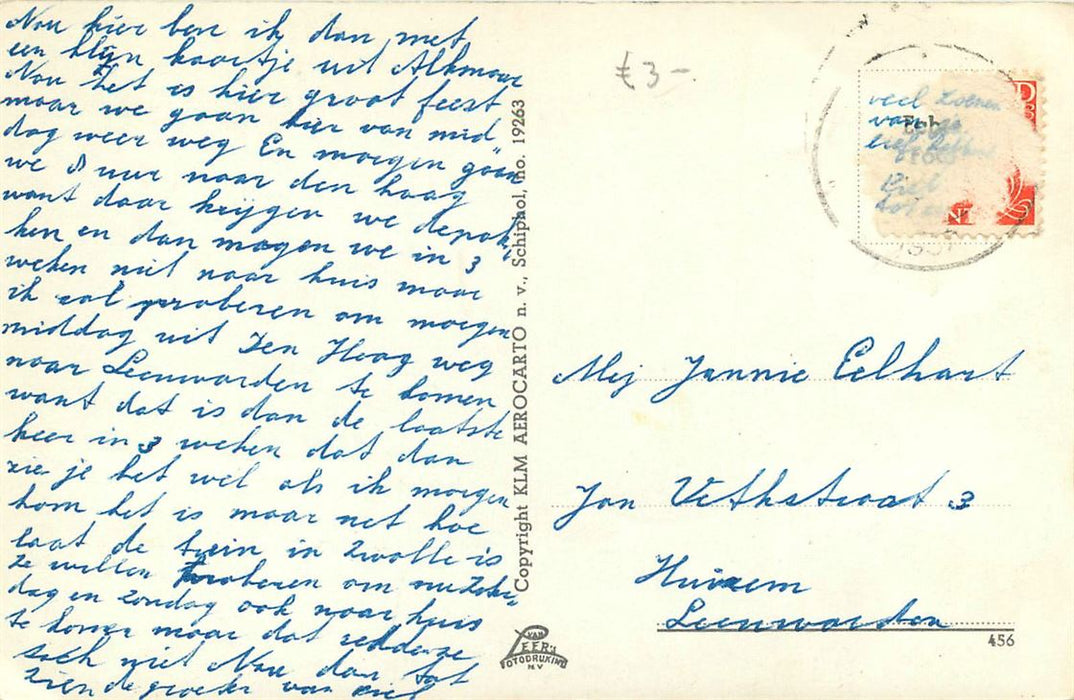 Nou hier ben ik dan met
een klijn kaartje uit Alkmaar
Nou het is hier groot feest
maar we gaan hier van mid
dag weer weg En morgen gaan
we 8 uur naar den haag
want daar krijgen we depak
ken en dan mogen we in 3
weken niet naar huis maar
ik zal proberen om morgen
middag uit Den Haag weg
naar Leeuwarden te komen
want dat is dan de laatste
keer in 3 weken dat dan
zie je het wel als ik morgen
kom het is maar net hoe
laat de trein in Zwolle is
Ze willen proberen om
dag en zondag ook naar huis
te komen maar dat redden ze
toch niet Nou dan tot
ziens de groeten van Piet
Copyright KLM AEROCARTO n. v., Schiphol, no. 19263
VAN LEER'S
FOTODRUKIND
N V
£ 3-
veel zoenen
van je
Piet
Mej Jannie Eelhart
Jan Vethstraat 3
Huizem
Leeuwarden
456